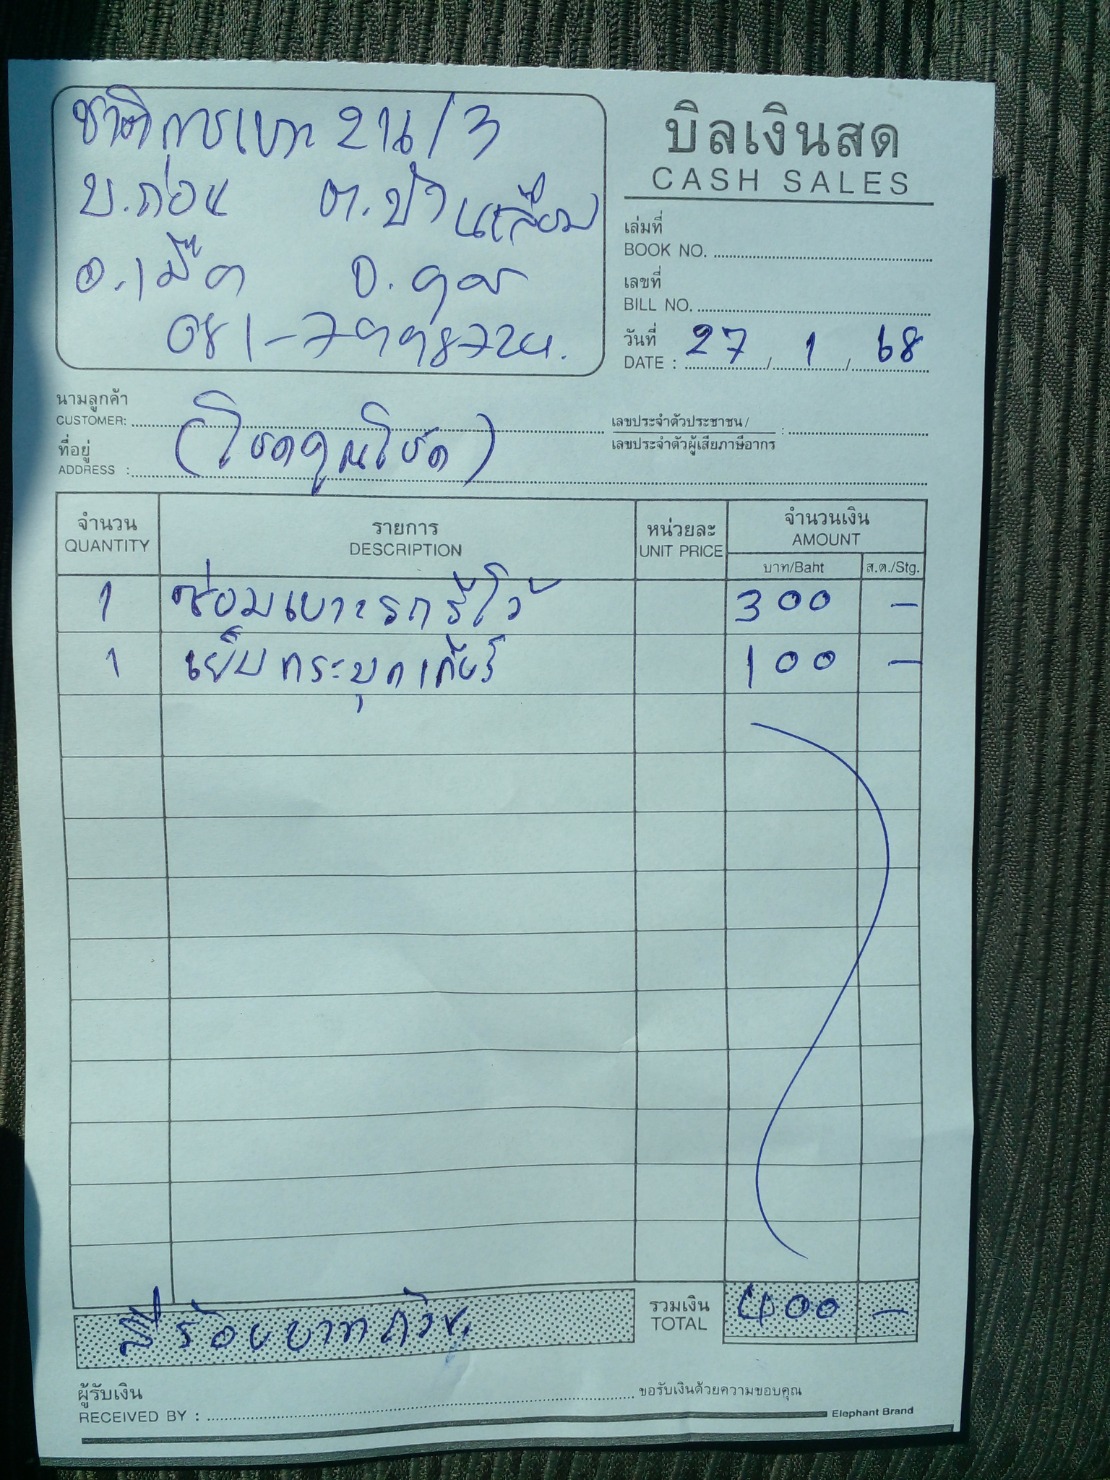 ชาติการเบาะ 214/3
บิลเงินสด
CASH SALES
บ.ถ่อน ต.บ้านเลื่อม
เล่มที่
BOOK NO.
อ.เมือง จ.อุดร
เลขที่
BILL NO.
081-
วันที่
DATE : 27 / 1 / 68
นามลูกค้า
CUSTOMER:
เลขประจำตัวประชาชน/ :
เลขประจำตัวผู้เสียภาษีอากร
ที่อยู่
ADDRESS :
จำนวน รายการ หน่วยละ จำนวนเงิน
QUANTITY DESCRIPTION UNIT PRICE AMOUNT
บาท/Baht ส.ต./Stg.
1 ซ่อมเบาะรถรีโว้ 300 –
1 เย็บกระบุกเกียร์ 100 –
สี่ร้อยบาทถ้วน
รวมเงิน
TOTAL 400 –
ผู้รับเงิน ขอรับเงินด้วยความขอบคุณ
RECEIVED BY :
Elephant Brand